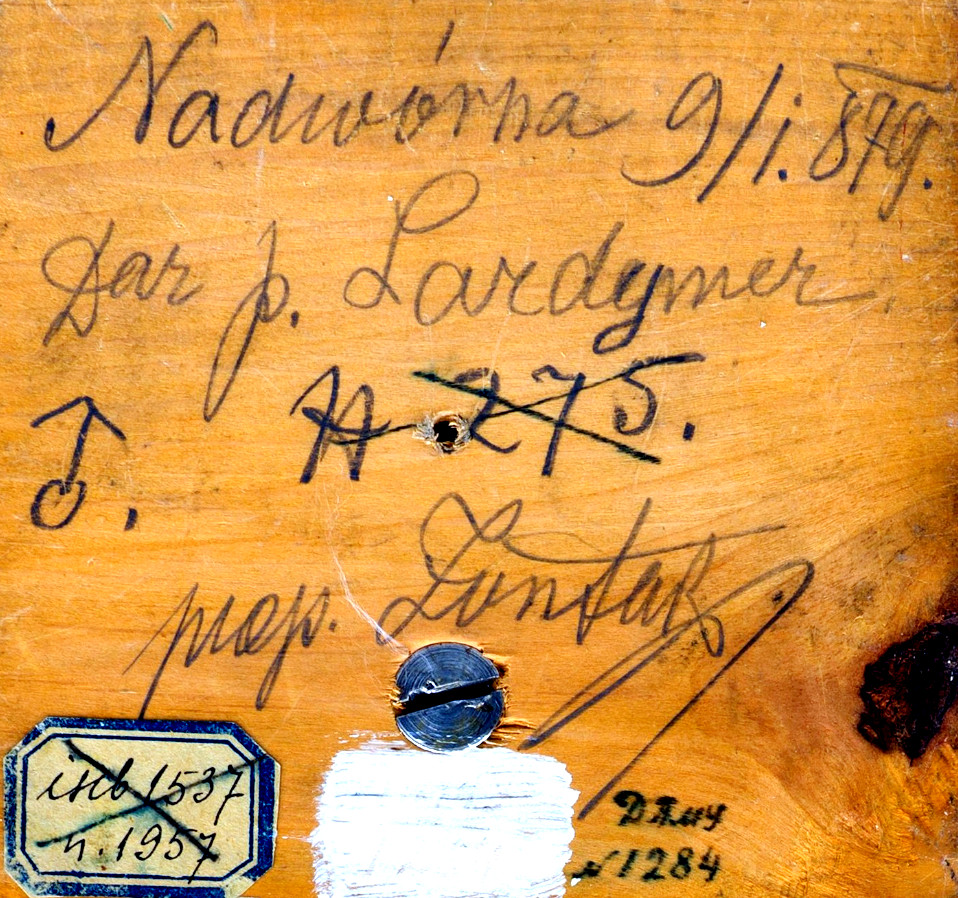 Nadwórna 9/i. 879.
Dar p. Lardymer
A 275.
♂.
prep. Zontak
інв 1537
п. 1957
ДПМУ
№ 1284